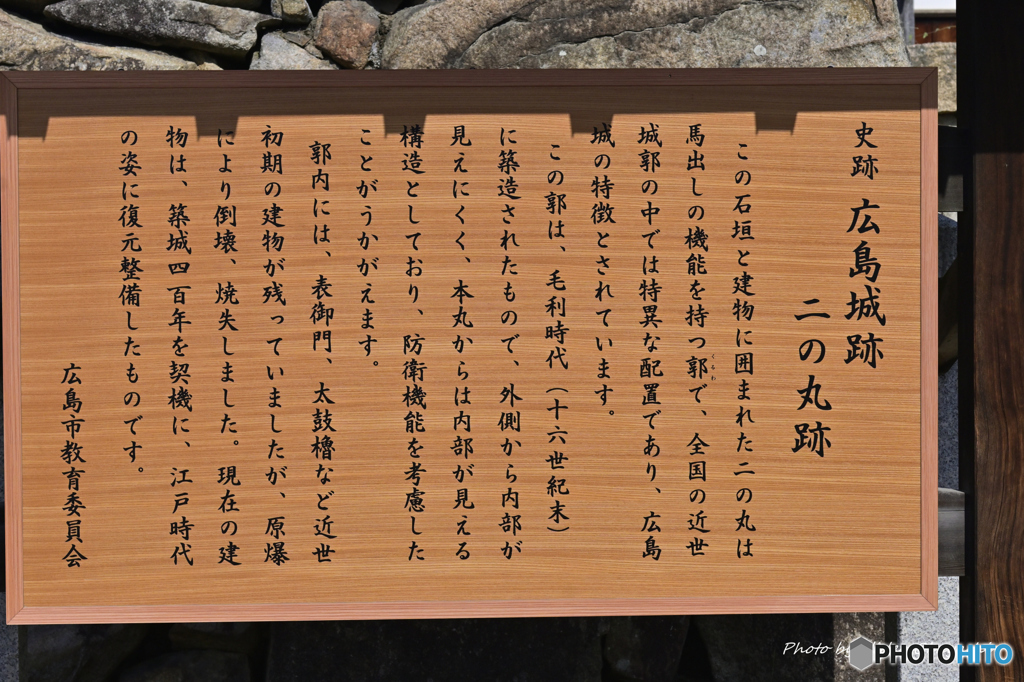 史跡 広島城跡
二の丸跡
この石垣と建物に囲まれた二の丸は
馬出しの機能を持つ郭で、全国の近世
くるわ
城郭の中では特異な配置であり、広島
城の特徴とされています。
この郭は、毛利時代（十六世紀末）
に築造されたもので、外側から内部が
見えにくく、本丸からは内部が見える
構造としており、防衛機能を考慮した
ことがうかがえます。
郭内には、表御門、太鼓櫓など近世
初期の建物が残っていましたが、原爆
により倒壊、焼失しました。現在の建
物は、築城四百年を契機に、江戸時代
の姿に復元整備したものです。
広島市教育委員会
Photo by
PHOTOHITO